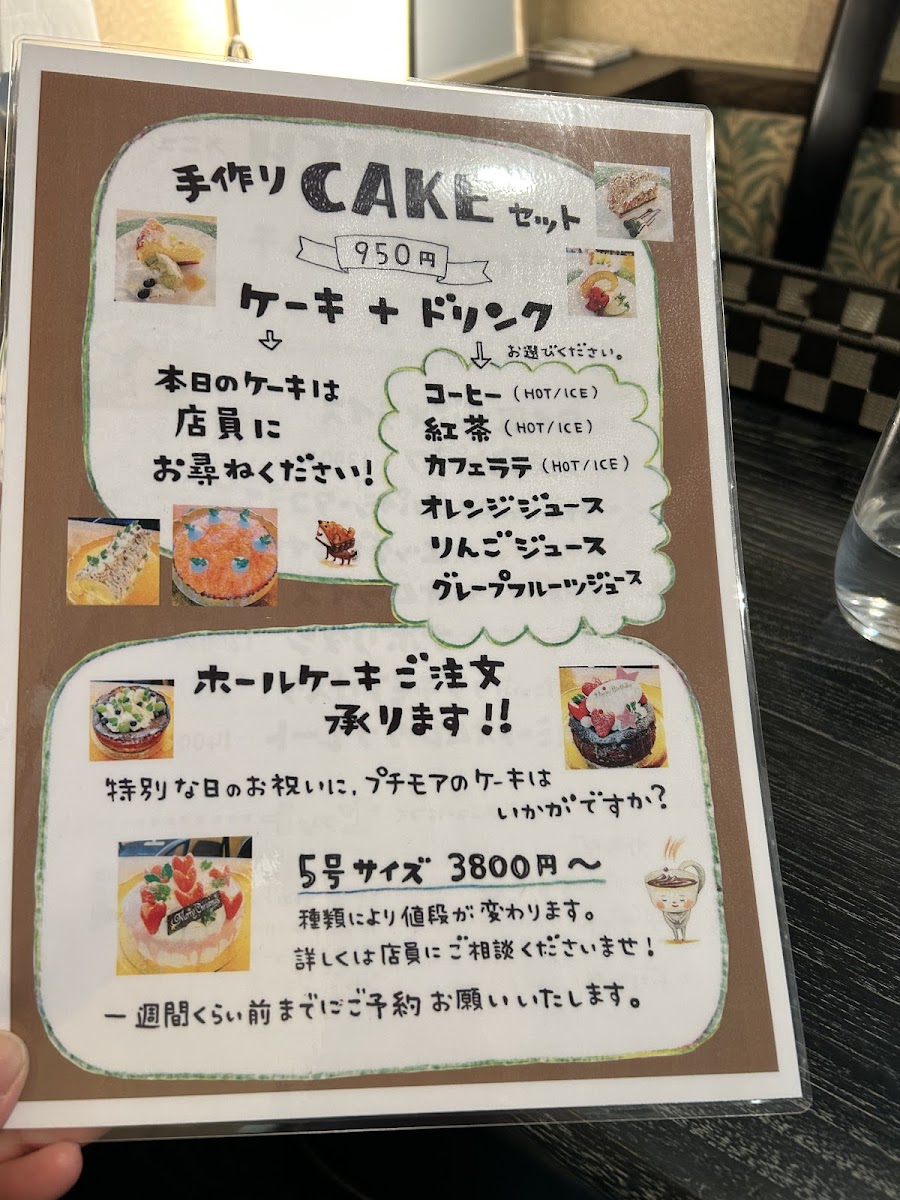 手作り CAKE セット
950円
ケーキ + ドリンク
お選びください。
本日のケーキは
店員に
お尋ねください!
コーヒー (HOT/ICE)
紅茶 (HOT/ICE)
カフェラテ (HOT/ICE)
オレンジジュース
りんごジュース
グレープフルーツジュース
ホールケーキご注文
承ります!!
特別な日のお祝いに、プチモアのケーキは
いかがですか?
5号サイズ 3800円～
種類により値段が変わります。
詳しくは店員にご相談くださいませ!
一週間くらい前までにご予約お願いいたします。